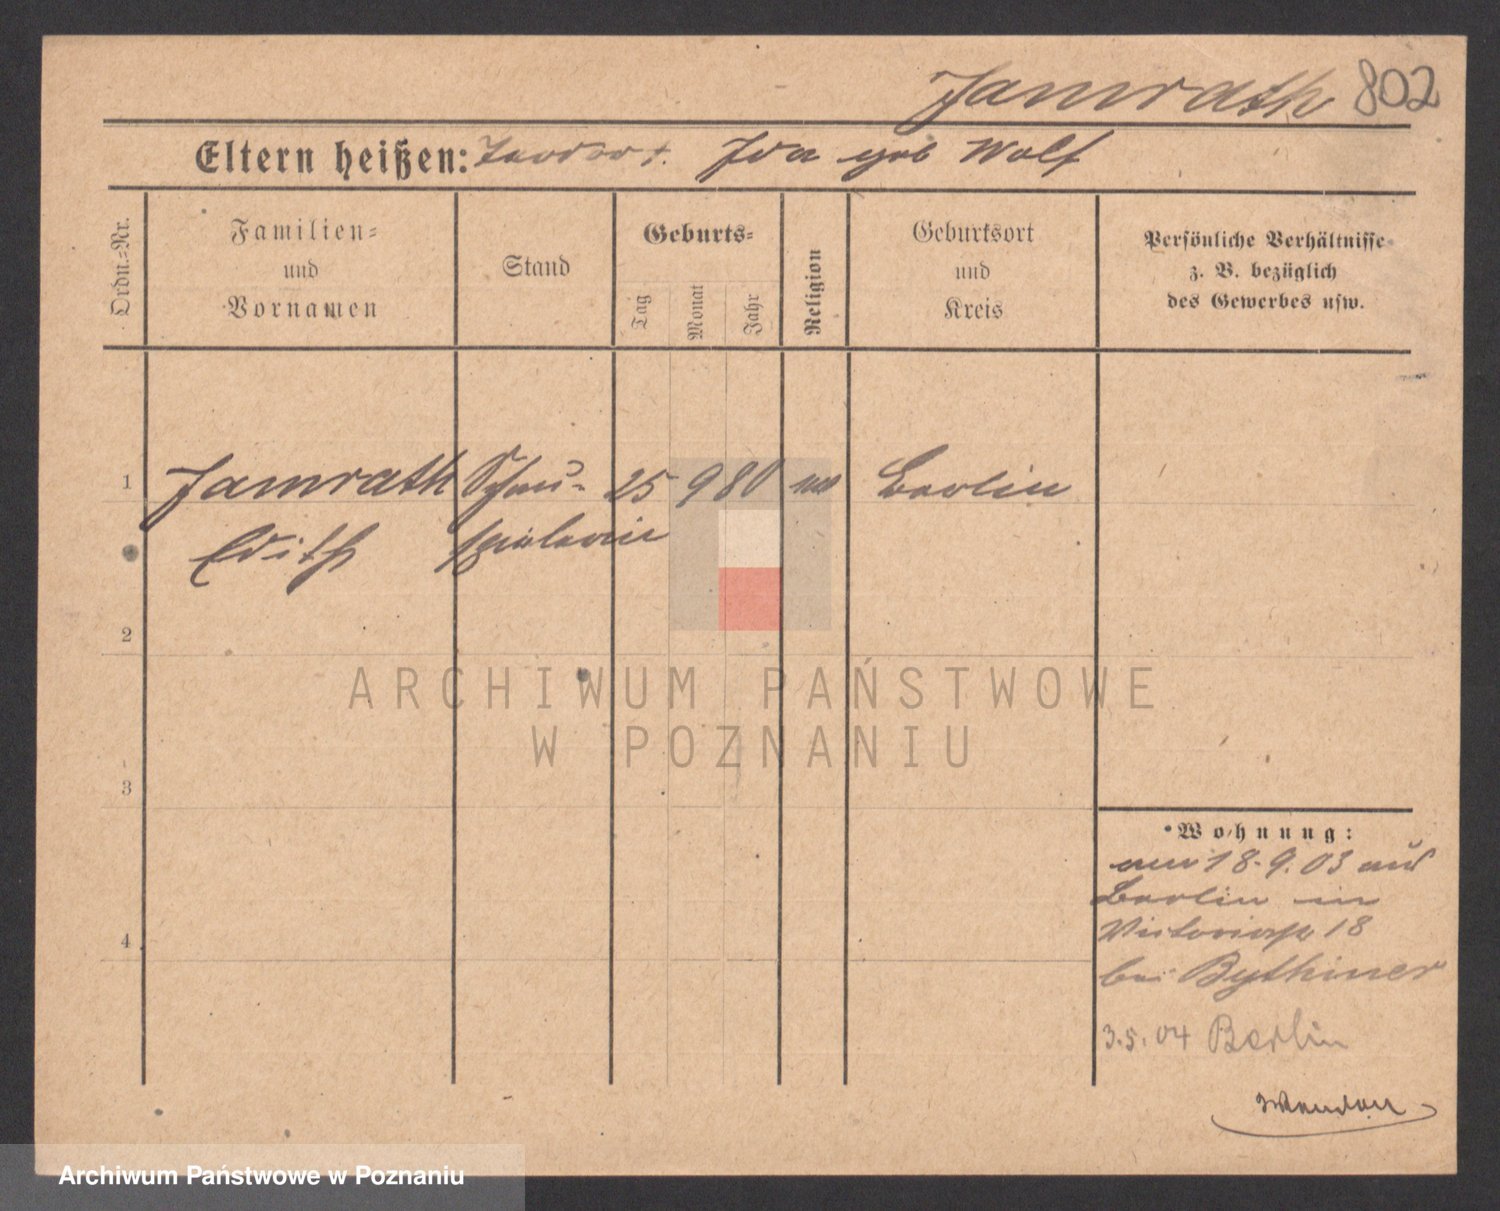 Jamrath 802
Eltern heißen: Theodor †. Ida geb Wolf
Ordn.-Nr.
Familien-
und
Vornamen
Stand
Geburts-
Tag
Monat
Jahr
Religion
Geburtsort
und
Kreis
Persönliche Verhältnisse
z. B. bezüglich
des Gewerbes usw.
1 Jamrath Schau- 25 9 80 Berlin
Edith spielerin
2
3
4
Wohnung:
am 18.9.03 aus
Berlin in
Victoriastr 18
bei Bythiner
3.5.04 Berlin
ARCHIWUM PAŃSTWOWE
W POZNANIU
Archiwum Państwowe w Poznaniu